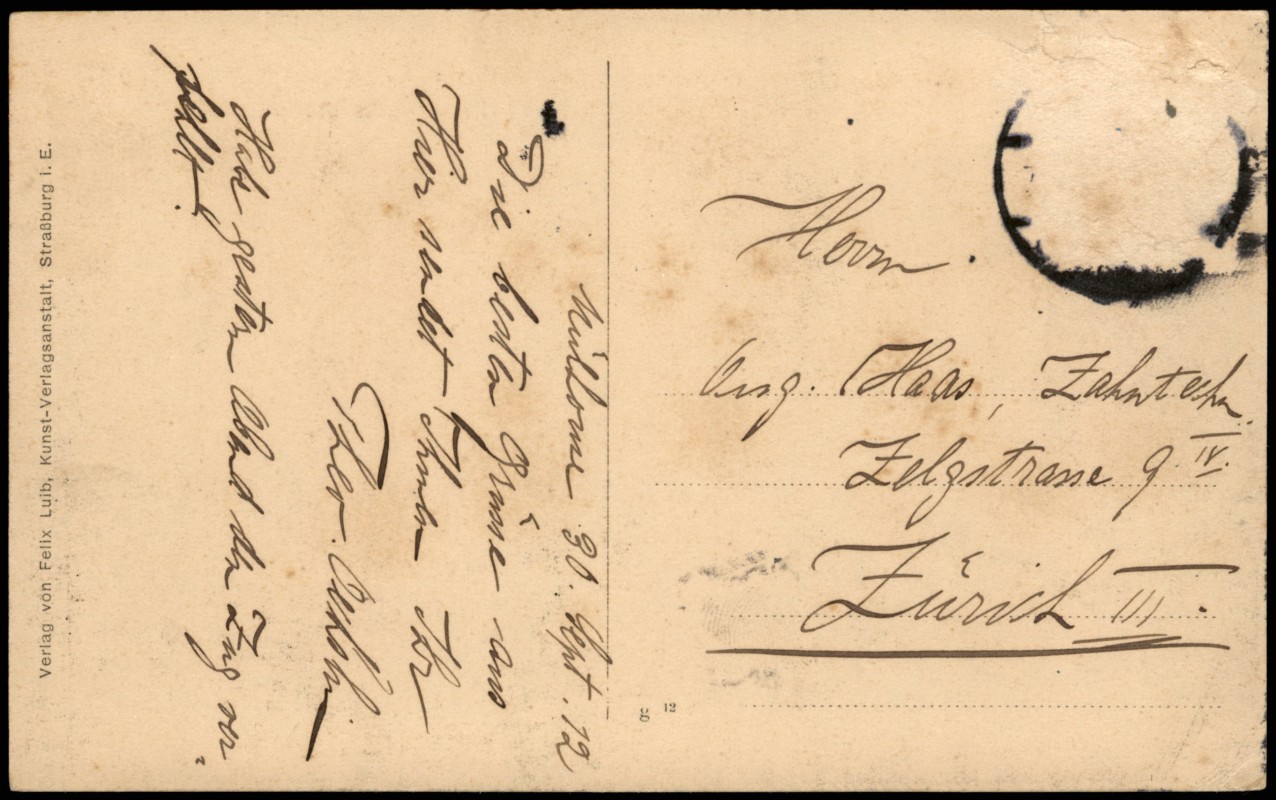 Mülhouse 30. Sept. 12
Die besten Grüsse aus
Hier sendet Ihnen Ihr
Theo.
Habe gestern Abend den Zug ver
fehlt.
Herrn
Aug. Haas, Zahntechn.
Zelgstrasse 9 IV.
Zürich III.
g 12
Verlag von Felix Luib, Kunst-Verlagsanstalt, Straßburg i. E.